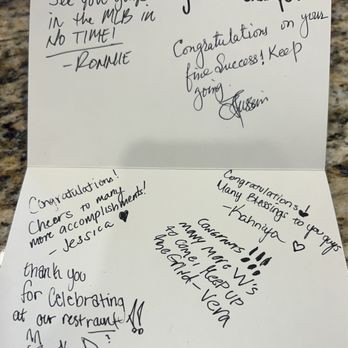 See you guys
in the MLB in
NO TIME!
- RONNIE
Congratulations on your
fine Success! Keep
going
Congratulations!
Cheers to many
more accomplishments!
- Jessica
Congratulations
Many Blessings to you guys
- Kahniya
Congrats!!!
many more W's
to come! Keep up
the Grind - Vera
thank you
for Celebrating
at our restraunt!!